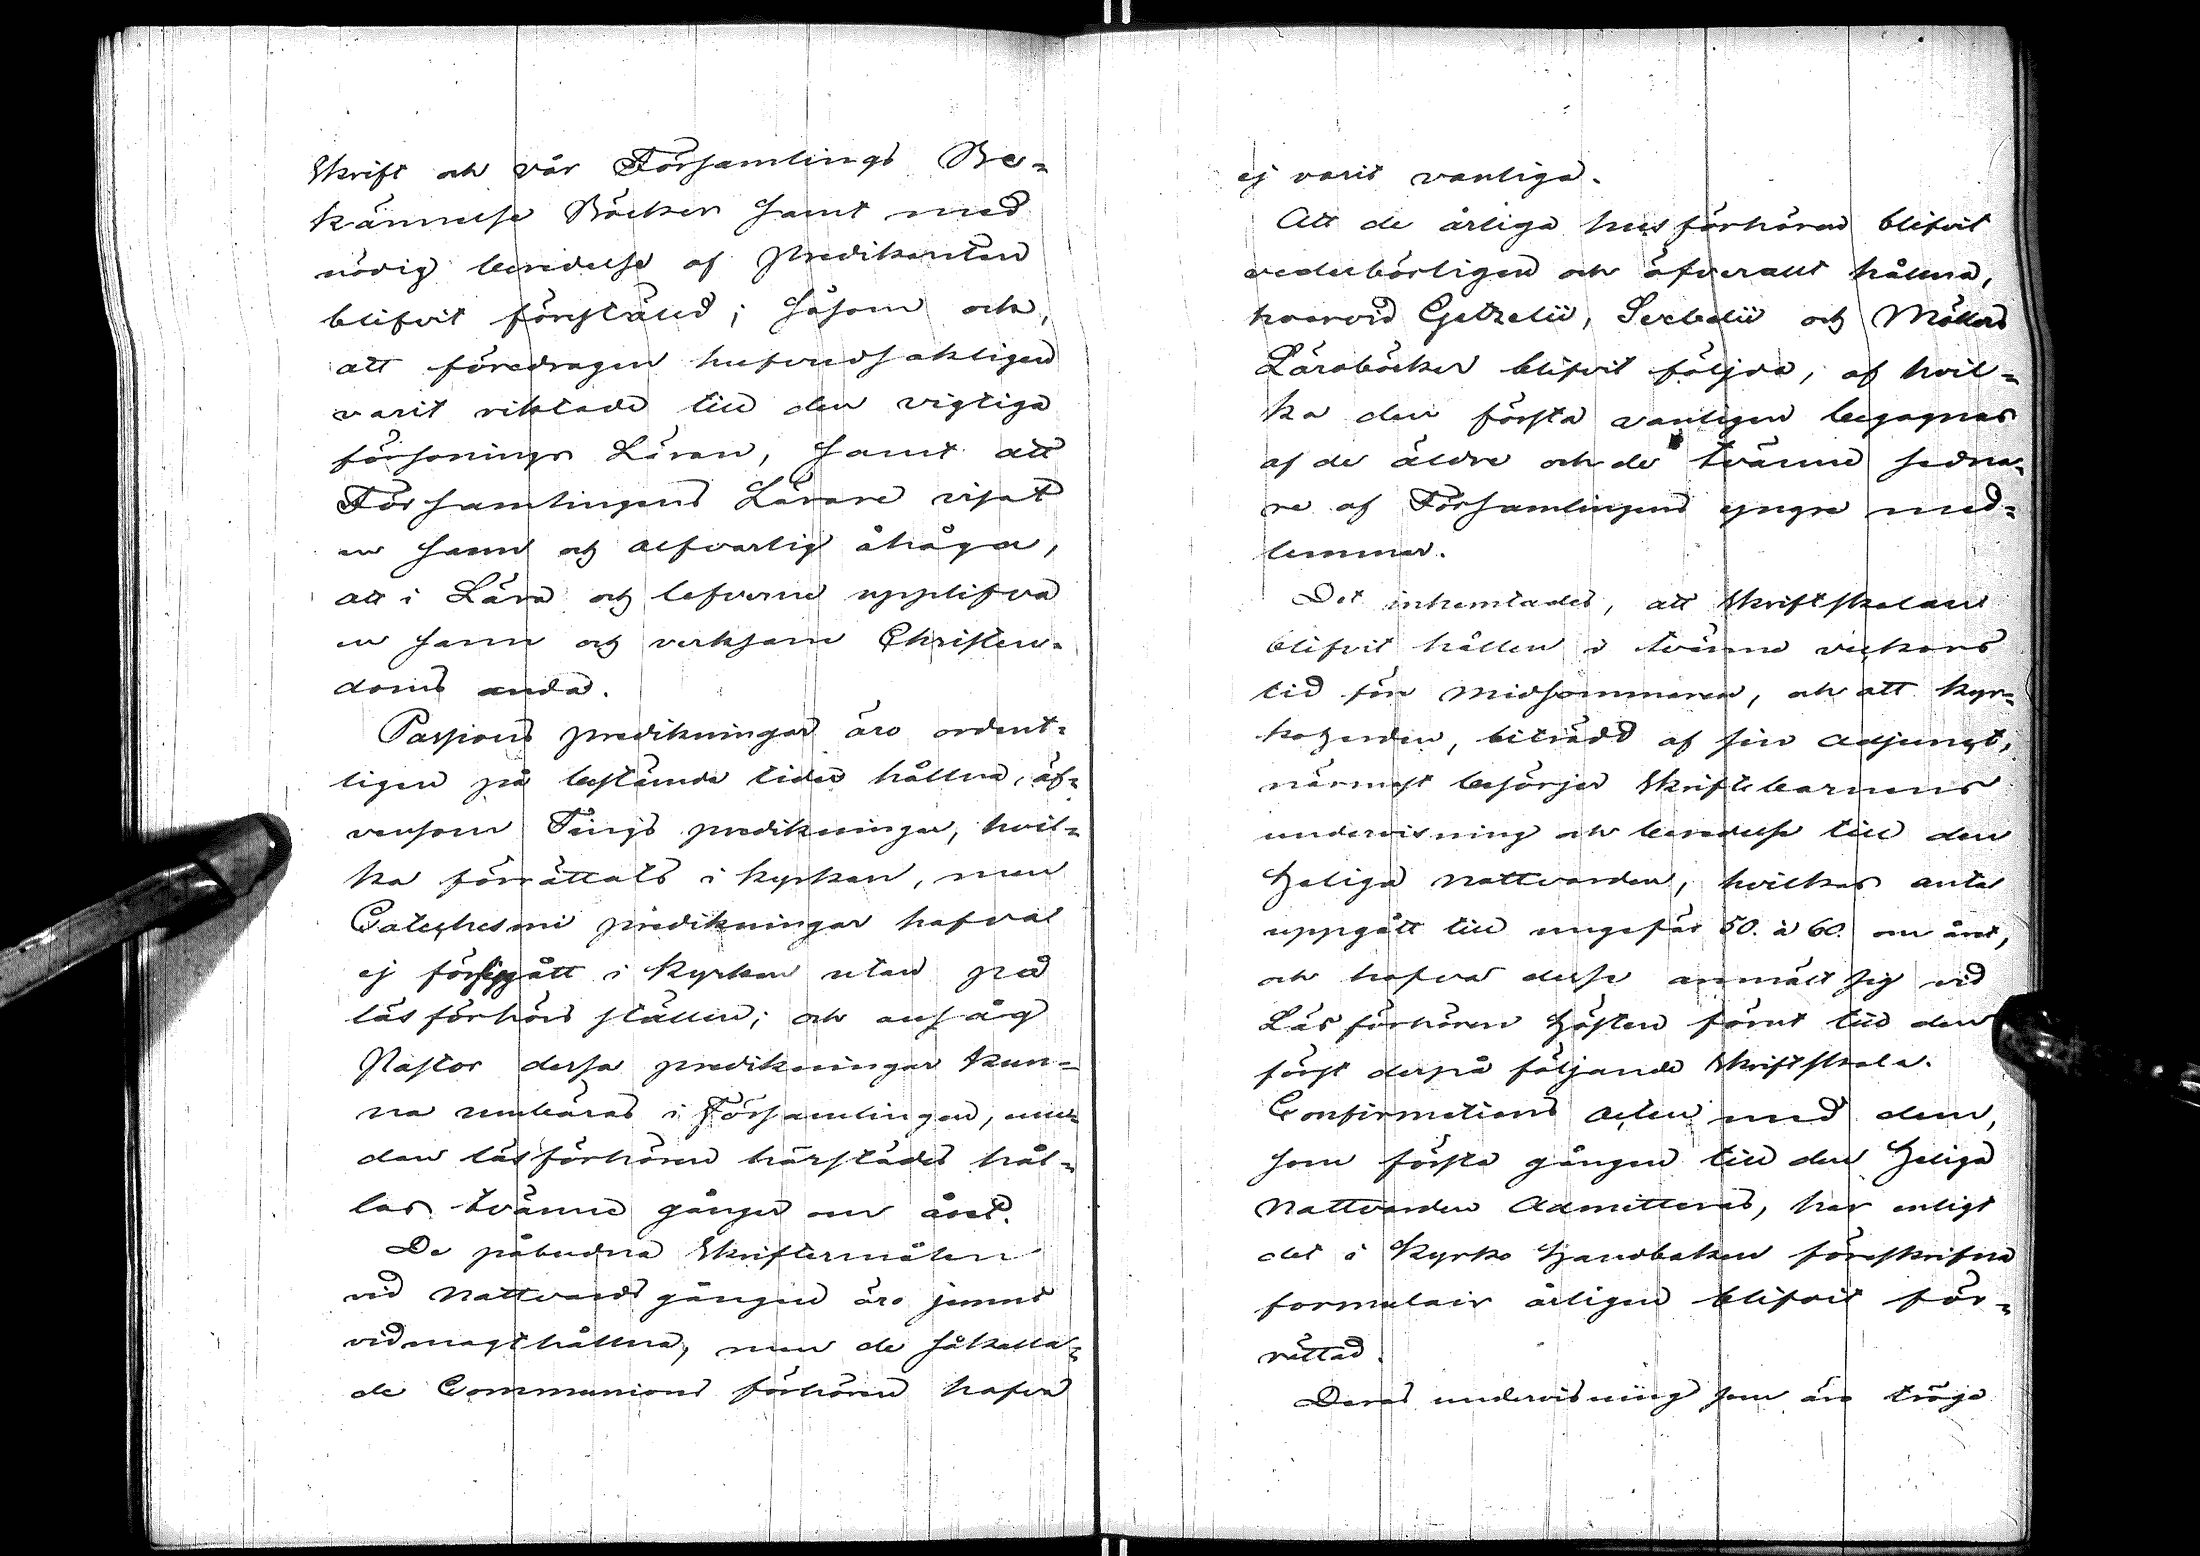 Skrift och vår Församlings Be-
kännelse Böcker samt med
nödig beredelse af Predikanten
blifvit föreställd; såsom ock,
att föredragen hufvudsakligen
varit riktade till den vigtiga
försonings Läran, samt att
Församlingens Lärare visat
en sann och alfvarlig åhåga,
att i Lära och lefverne upplifva
en sann och verksam Christen-
doms anda.
Passions predikningar äro ordent-
ligen på bestämde tider hållna, äf-
vensom Tings predikningar, hvil-
ka förrättats i kyrkan, men
Catechesmi predikningar hafva
ej föregått i Kyrkan utan på
läsförhörs ställen; och ansåg
Pastor dessa predikningar kun-
na umbäras i Församlingen, me-
dan läsförhören härstädes hål-
las tvänne gånger om året.
De påbudna Skriftermålen
vid Nattvards gången äro jemnt
vidmagthållna, men de såkalla-
de Communions förhören hafva
ej varit vanliga.
Att de årliga husförhören blifvit
vederbörligen och öfverallt hållna,
hvarvid Getzelii, Serbelii och Möllers
Läroböcker blifvit följda, af hvil-
ka den första vanligen begagnas
af de äldre och de tvänne sedna-
re af Församlingens yngre med-
lemmar.
Det inhemtades, att Skriftskolan
blifvit hållen i tvänne veckors
tid för Midsommaren, och att Kyr-
koherden, biträdd af sin Adjunct,
närmast besörjer Skriftebarnens
undervisning och beredelse till den
Heliga Nattvarden, hvilkas antal
uppgått till ungefär 50. à 60. om året,
och hafva desse anmält sig vid
Läsförhören Hösten förut till den
först derpå följande Skriftskola.
Confirmations Acten med dem,
som första gången till den Heliga
Nattvarden Admitteras, har enligt
det i Kyrko Handboken föreskrifna
formulair årligen blifvit för-
rättad.
Deras undervisning som äro tröga